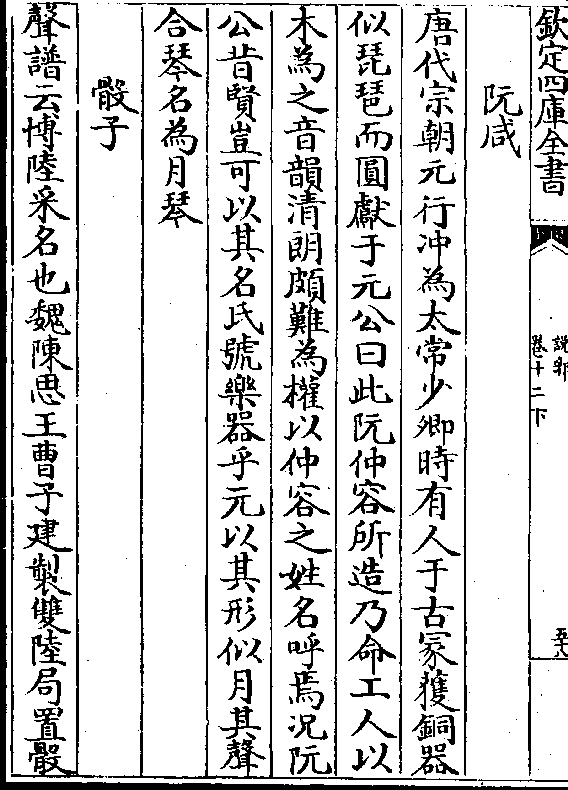 欽定四庫全書
說郛
卷十二下
五八
阮咸
唐代宗朝元行冲為太常少卿時有人于古冢獲銅器
似琵琶而圓獻于元公曰此阮仲容所造乃命工人以
木為之音韻清朗頗難為權以仲容之姓名呼焉况阮
公昔賢豈可以其名氏號樂器乎元以其形似月其聲
合琴名為月琴
骰子
聲譜云博陸采名也魏陳思王曹子建製雙陸局置骰